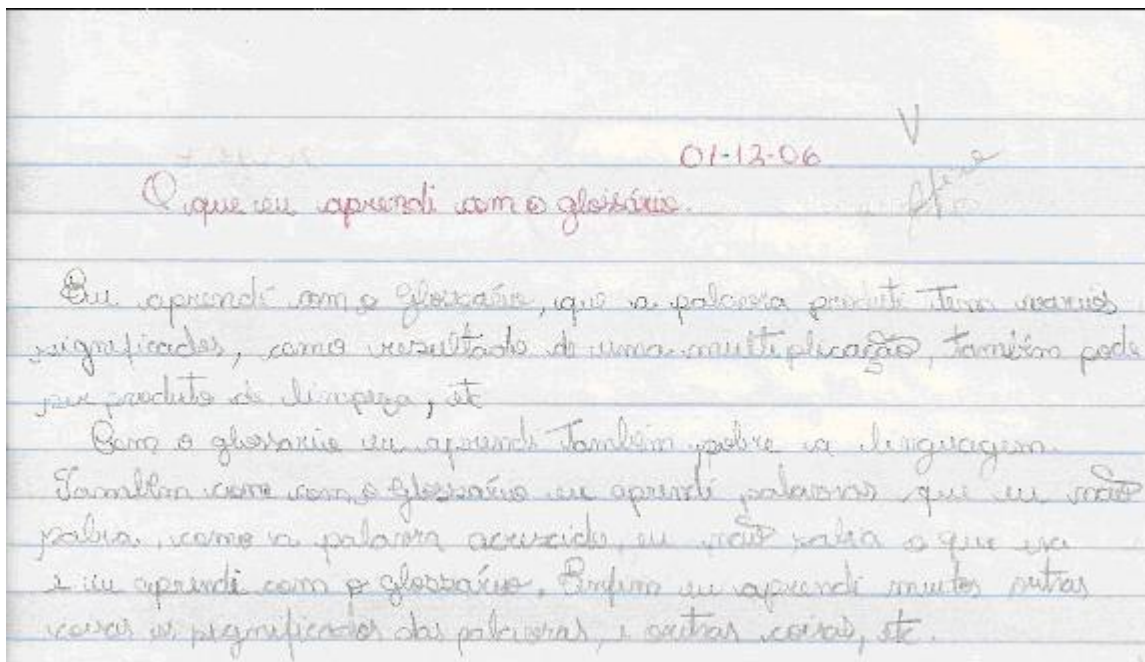 V
01-12-06
O que eu aprendi com o glossário.
Eu aprendi com o glossário, que a palavra produto tem varios
significados, como resultado de uma multiplicação, também pode
ser produto de limpeza, etc
Com o glossario eu aprendi também sobre a linguagem.
Também com com o glossário eu aprendi palavras que eu não
sabia, como a palavra acrescido, eu não sabia o que era
e eu aprendi com o glossário. Enfim eu aprendi muitas outras
coisas os significados das palavras, e outras coisas, etc.